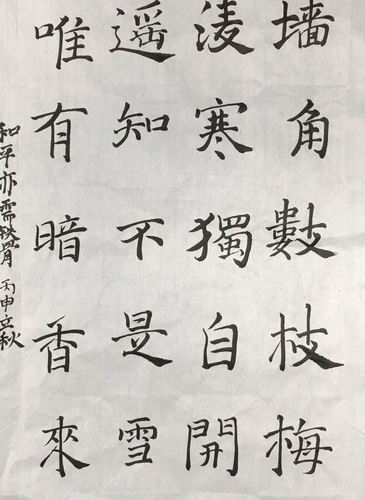 墙角數枝梅
淩寒獨自開
遥知不是雪
唯有暗香來
和平亦需铁骨 丙申立秋